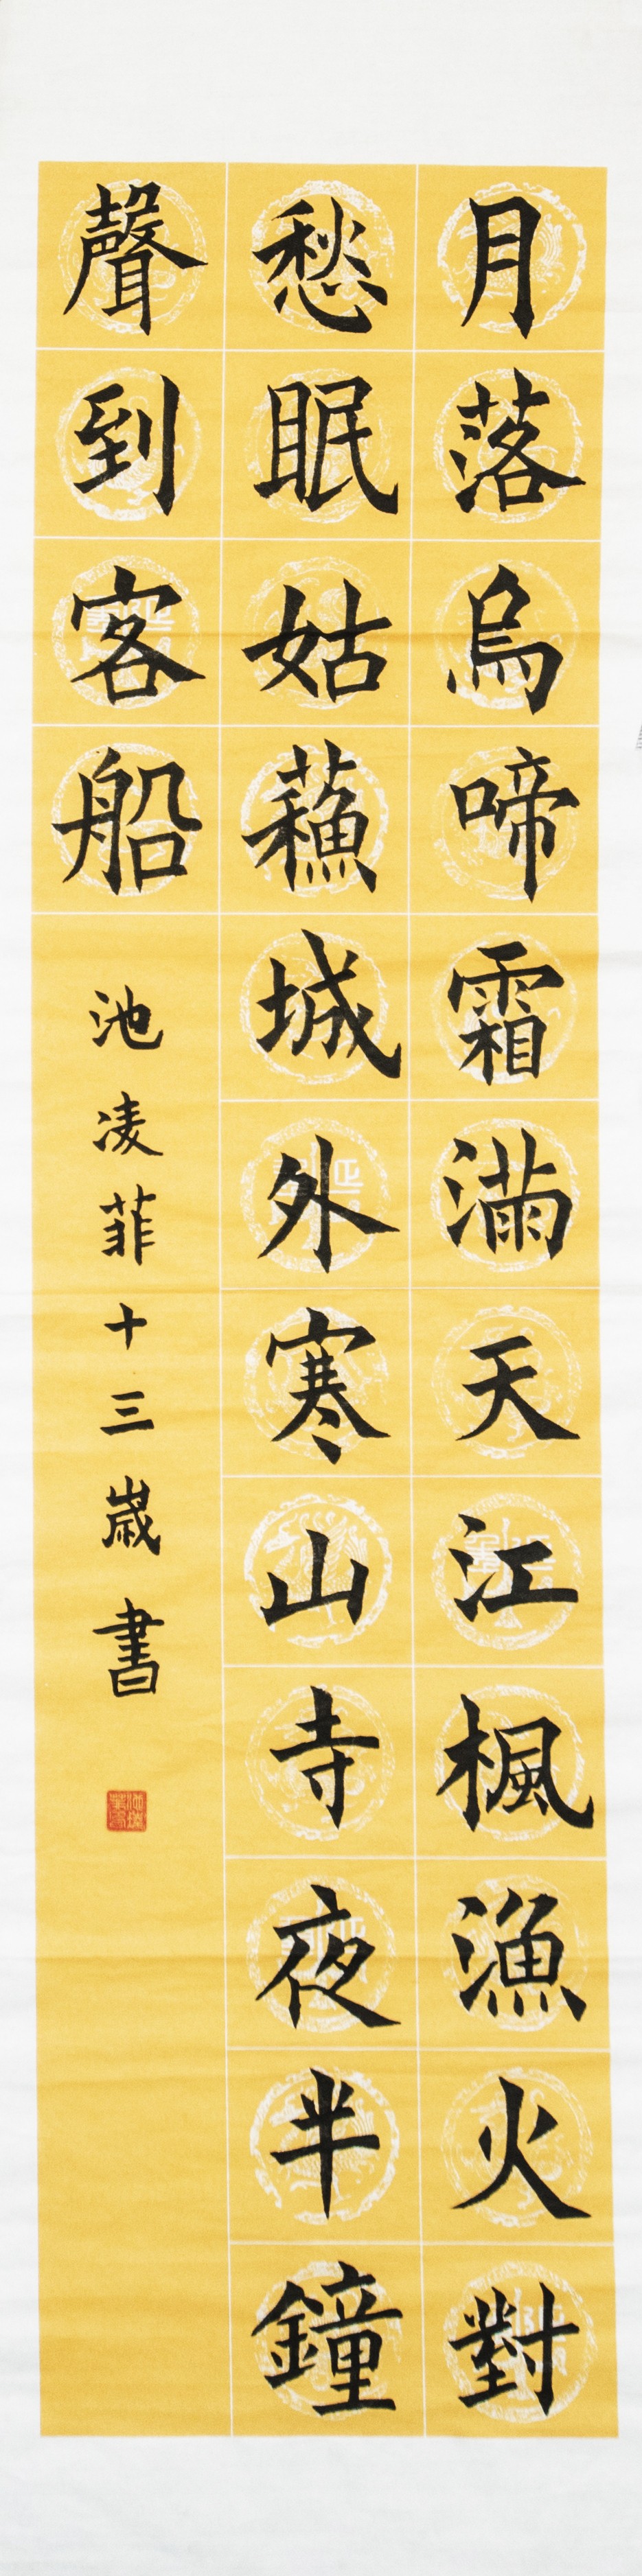 月落烏啼霜滿天江楓漁火對
愁眠姑蘓城外寒山寺夜半鐘
聲到客船
池凌菲十三歲書